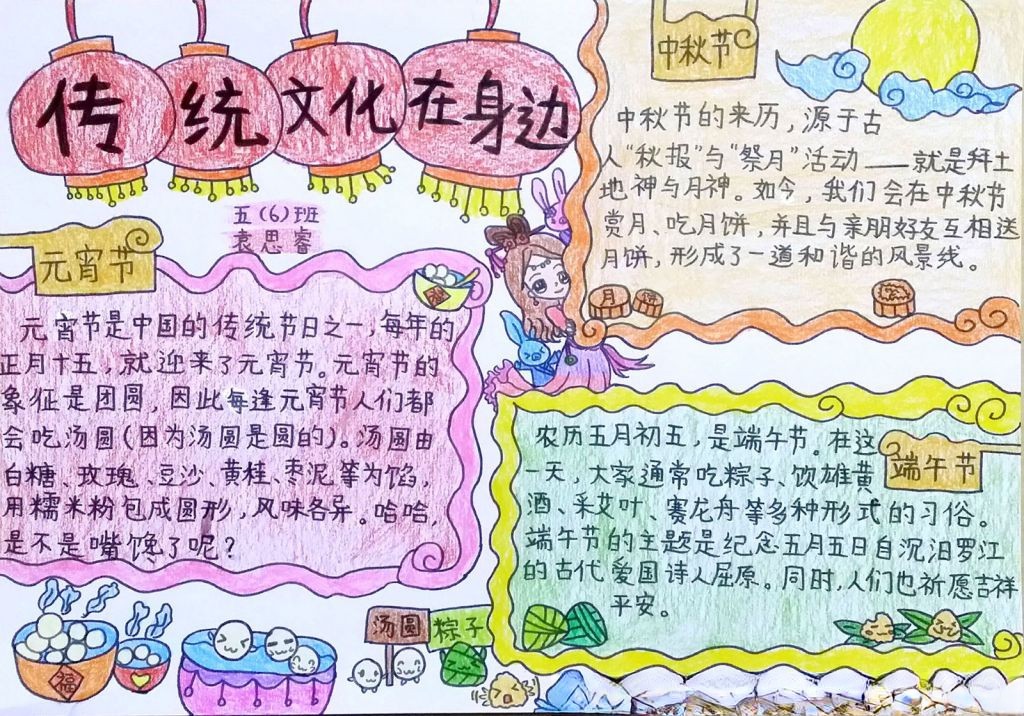 传统文化在身边
五(6)班
袁思睿
中秋节
中秋节的来历，源于古
人“秋报”与“祭月”活动——就是拜土
地神与月神。如今，我们会在中秋节
赏月、吃月饼，并且与亲朋好友互相送
月饼，形成了一道和谐的风景线。
月
元宵节
元宵节是中国的传统节日之一，每年的
正月十五，就迎来了元宵节。元宵节的
象征是团圆，因此每逢元宵节人们都
会吃汤圆(因为汤圆是圆的)。汤圆由
白糖、玫瑰、豆沙、黄桂、枣泥等为馅，
用糯米粉包成圆形，风味各异。哈哈，
是不是嘴馋了呢？
端午节
农历五月初五，是端午节。在这
一天，大家通常吃粽子、饮雄黄
酒、采艾叶、赛龙舟等多种形式的习俗。
端午节的主题是纪念五月五日自沉汨罗江
的古代爱国诗人屈原。同时，人们也祈愿吉祥
平安。
福
汤圆
粽子